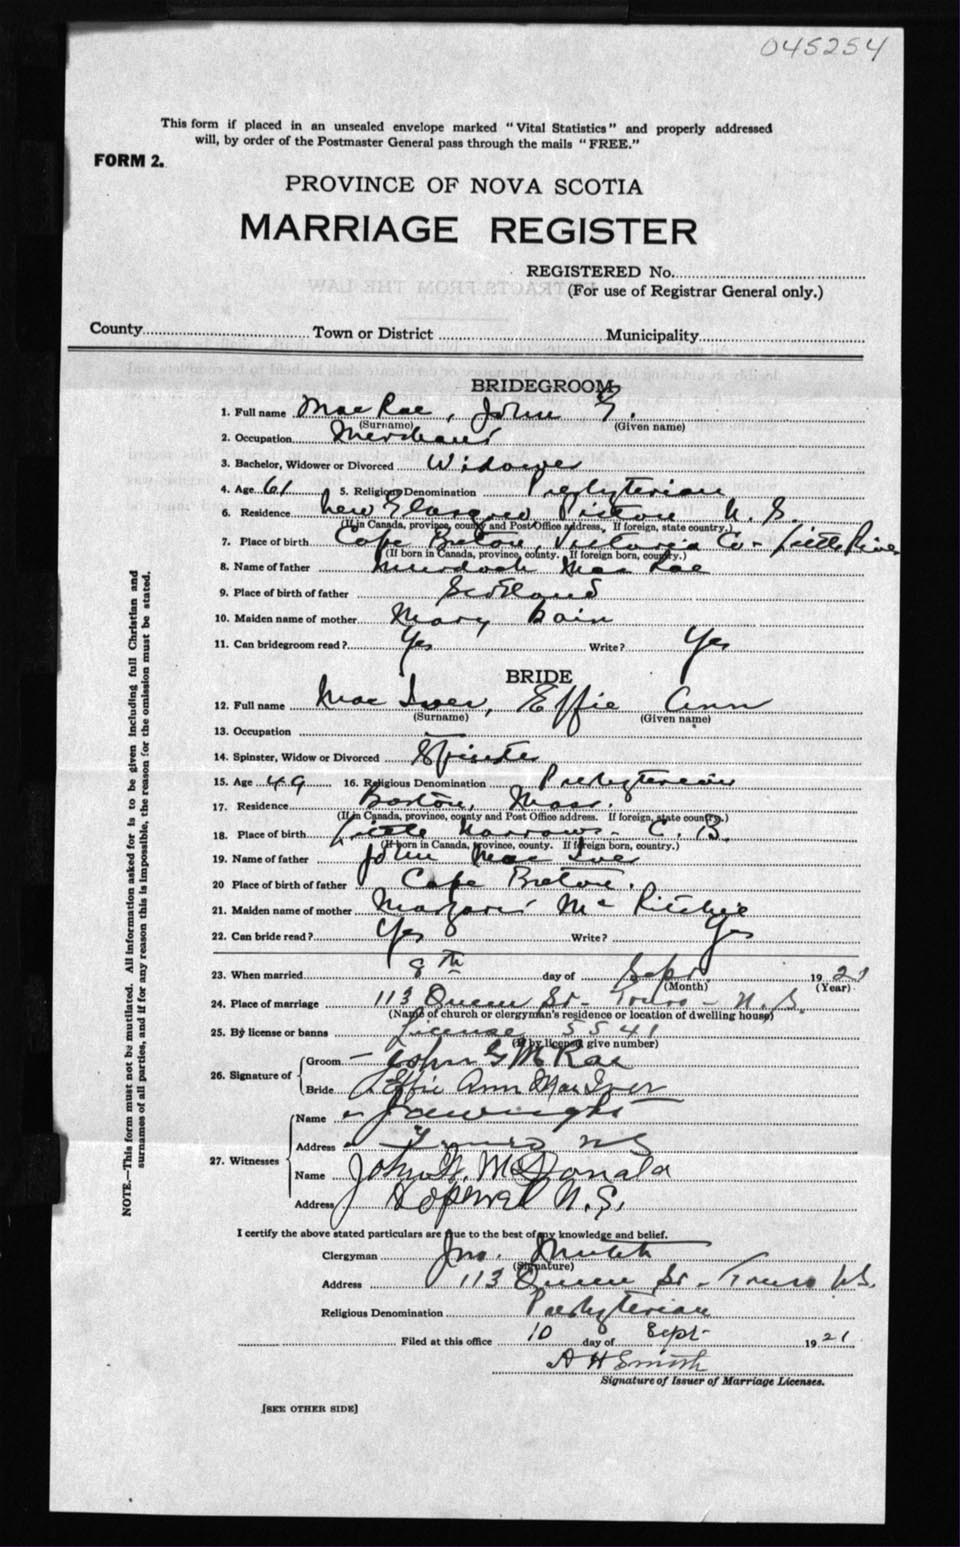 045254
This form if placed in an unsealed envelope marked "Vital Statistics" and properly addressed
will, by order of the Postmaster General pass through the mails "FREE."
FORM 2.
PROVINCE OF NOVA SCOTIA
MARRIAGE REGISTER
REGISTERED No.
(For use of Registrar General only.)
County Town or District Municipality
BRIDEGROOM
1. Full name MacRae, John G.
(Surname) (Given name)
2. Occupation Merchant
3. Bachelor, Widower or Divorced Widower
4. Age 61 5. Religious Denomination Presbyterian
6. Residence New Glasgow Pictou N. S.
(If in Canada, province, county and Post Office address. If foreign, state country.)
7. Place of birth Cape Breton, Victoria Co - Little River
(If born in Canada, province, county. If foreign born, country.)
8. Name of father Murdoch MacRae
9. Place of birth of father Scotland
10. Maiden name of mother Mary
11. Can bridegroom read? Yes Write? Yes
BRIDE
12. Full name MacIver, Effie Ann
(Surname) (Given name)
13. Occupation
14. Spinster, Widow or Divorced Spinster
15. Age 49 16. Religious Denomination Presbyterian
17. Residence Boston, Mass.
(If in Canada, province, county and Post Office address. If foreign, state country.)
18. Place of birth Little Narrows - C. B.
(If born in Canada, province, county. If foreign born, country.)
19. Name of father John MacIver
20 Place of birth of father Cape Breton.
21. Maiden name of mother Margaret McRitchie
22. Can bride read? Yes Write? Yes
23. When married 8th day of Sept. 1921
(Month) (Year)
24. Place of marriage 113 Queen St - Truro - N. S.
(Name of church or clergyman's residence or location of dwelling house)
25. By license or banns License 5541
(If by license, give number)
26. Signature of
Groom John G McRae
Bride Effie Ann MacIver
27. Witnesses
Name
Address Truro N S
Name John McDonald
Address Hopewell N. S.
I certify the above stated particulars are true to the best of my knowledge and belief.
Clergyman Jno. Mutch
(Signature)
Address 113 Queen St - Truro N.S.
Religious Denomination Presbyterian
Filed at this office 10 day of Sept - 1921
A H Smith
Signature of Issuer of Marriage Licenses.
[SEE OTHER SIDE]
NOTE.—This form must not be mutilated. All information asked for is to be given including full Christian and
surnames of all parties, and if for any reason this is impossible, the reason for the omission must be stated.